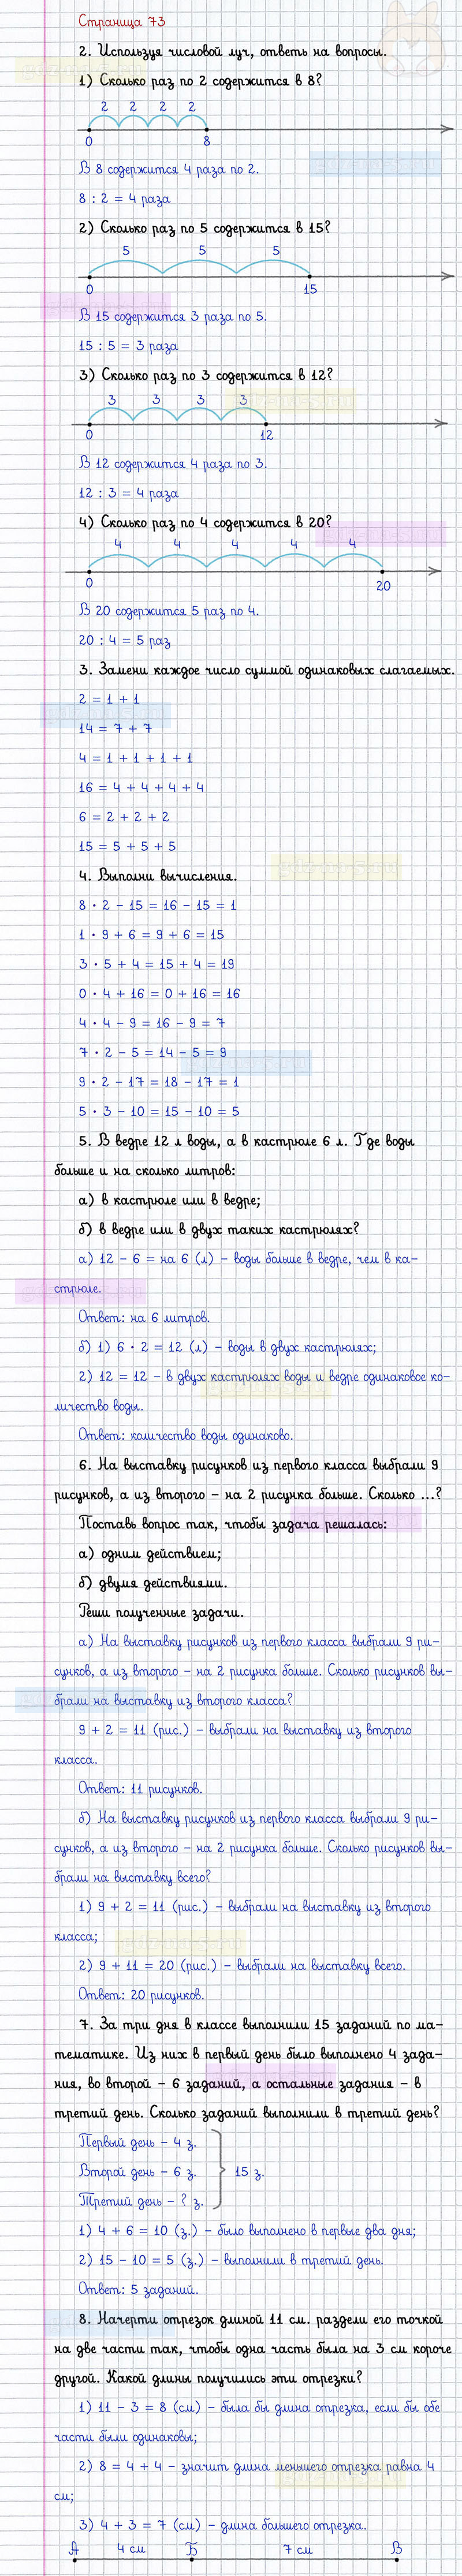 Страница 73
2. Используя числовой луч, ответь на вопросы.
1) Сколько раз по 2 содержится в 8?
2 2 2 2
0 8
В 8 содержится 4 раза по 2.
8 : 2 = 4 раза
2) Сколько раз по 5 содержится в 15?
5 5 5
0 15
В 15 содержится 3 раза по 5.
15 : 5 = 3 раза
3) Сколько раз по 3 содержится в 12?
3 3 3 3
0 12
В 12 содержится 4 раза по 3.
12 : 3 = 4 раза
4) Сколько раз по 4 содержится в 20?
4 4 4 4 4
0 20
В 20 содержится 5 раз по 4.
20 : 4 = 5 раз
3. Замени каждое число суммой одинаковых слагаемых.
2 = 1 + 1
14 = 7 + 7
4 = 1 + 1 + 1 + 1
16 = 4 + 4 + 4 + 4
6 = 2 + 2 + 2
15 = 5 + 5 + 5
4. Выполни вычисления.
8 · 2 – 15 = 16 – 15 = 1
1 · 9 + 6 = 9 + 6 = 15
3 · 5 + 4 = 15 + 4 = 19
0 · 4 + 16 = 0 + 16 = 16
4 · 4 – 9 = 16 – 9 = 7
7 · 2 – 5 = 14 – 5 = 9
9 · 2 – 17 = 18 – 17 = 1
5 · 3 – 10 = 15 – 10 = 5
5. В ведре 12 л воды, а в кастрюле 6 л. Где воды
больше и на сколько литров:
а) в кастрюле или в ведре;
б) в ведре или в двух таких кастрюлях?
а) 12 – 6 = на 6 (л) – воды больше в ведре, чем в ка-
стрюле.
Ответ: на 6 литров.
б) 1) 6 · 2 = 12 (л) – воды в двух кастрюлях;
2) 12 = 12 – в двух кастрюлях воды и ведре одинаковое ко-
личество воды.
Ответ: количество воды одинаково.
6. На выставку рисунков из первого класса выбрали 9
рисунков, а из второго – на 2 рисунка больше. Сколько ...?
Поставь вопрос так, чтобы задача решалась:
а) одним действием;
б) двумя действиями.
Реши полученные задачи.
а) На выставку рисунков из первого класса выбрали 9 ри-
сунков, а из второго – на 2 рисунка больше. Сколько рисунков вы-
брали на выставку из второго класса?
9 + 2 = 11 (рис.) – выбрали на выставку из второго
класса.
Ответ: 11 рисунков.
б) На выставку рисунков из первого класса выбрали 9 ри-
сунков, а из второго – на 2 рисунка больше. Сколько рисунков вы-
брали на выставку всего?
1) 9 + 2 = 11 (рис.) – выбрали на выставку из второго
класса;
2) 9 + 11 = 20 (рис.) – выбрали на выставку всего.
Ответ: 20 рисунков.
7. За три дня в классе выполнили 15 заданий по ма-
тематике. Из них в первый день было выполнено 4 зада-
ния, во второй – 6 заданий, а остальные задания – в
третий день. Сколько заданий выполнили в третий день?
Первый день – 4 з.
Второй день – 6 з. 15 з.
Третий день – ? з.
1) 4 + 6 = 10 (з.) – было выполнено в первые два дня;
2) 15 – 10 = 5 (з.) – выполнили в третий день.
Ответ: 5 заданий.
8. Начерти отрезок длиной 11 см. раздели его точкой
на две части так, чтобы одна часть была на 3 см короче
другой. Какой длины получились эти отрезки?
1) 11 – 3 = 8 (см) – была бы длина отрезка, если бы обе
части были одинаковы;
2) 8 = 4 + 4 – значит длина меньшего отрезка равна 4
см;
3) 4 + 3 = 7 (см) – длина большего отрезка.
А 4 см Б 7 см В